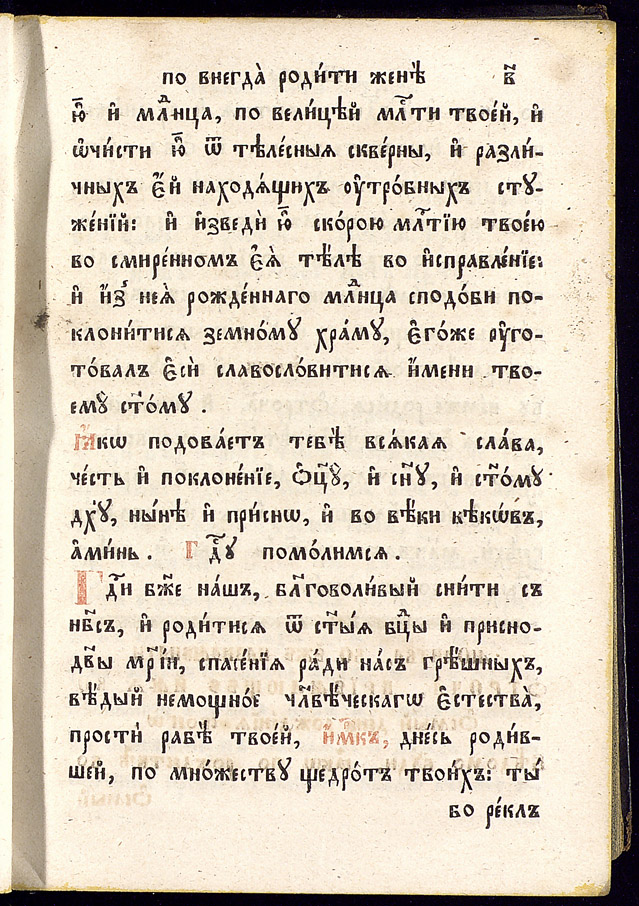 по внегда̀ роди́ти женѣ̀ в҃
ю҆̀ и҆ млⷣнца, по вели́цѣй млⷭ҇ти твое́й, и҆
ѡ҆чи́сти ю҆̀ ѿ тѣле́сныя скве́рны, и҆ разли́-
чныхъ є҆́й находѧ́щихъ ᲂу҆тро́бныхъ сту-
же́нїй: и҆ и҆зведѝ ю҆̀ ско́рою млⷭ҇тїю твое́ю
во смире́нномъ є҆ѧ̀ тѣ́лѣ во и҆справле́нїе:
и҆ и҆з̾ неѧ̀ рожде́ннаго млⷣнца сподо́би по-
клони́тисѧ земно́мꙋ хра́мꙋ, є҆го́же ᲂу҆го-
то́валъ є҆сѝ славосло́витисѧ и҆́мени тво-
емꙋ̀ ст҃о́мꙋ .
Ꙗ҆́кѡ подова́етъ тебѣ̀ всѧ́каѧ сла́ва,
че́сть и҆ поклоне́нїе, ѻ҆ц҃ꙋ̀, и҆ сн҃ꙋ, и҆ ст҃о́мꙋ
дх҃ꙋ, ны́нѣ и҆ при́снѡ, и҆ во вѣ́ки кѣкѡ́въ,
а҆ми́нь . Гдⷭ҇ꙋ помо́лимсѧ .
Гдⷭ҇и бж҃е на́шъ, бл҃говоли́вый сни́ти съ
нб҃съ, и҆ роди́тисѧ ѿ ст҃ы́ѧ бцⷣы и҆ присно-
дв҃ы мр҃і́и, спасе́нїѧ ра́ди на́съ грѣ́шныхъ,
вѣ́дый немощно́е чл҃вѣ́ческагѡ є҆стества̀,
простѝ рабѣ̀ твое́й, и҆́м҃къ, дне́сь роди́в-
шей, по мно́жествꙋ щедро́тъ твои́хъ: ты́
бо ре́клъ